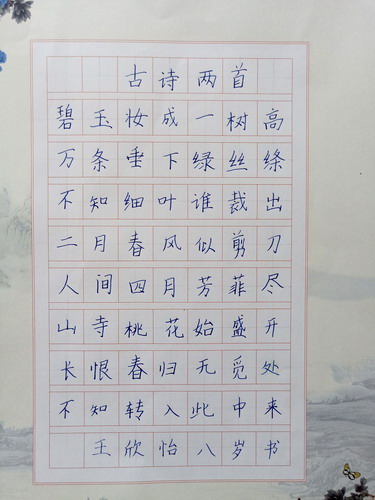 古诗两首
碧玉妆成一树高
万条垂下绿丝绦
不知细叶谁裁出
二月春风似剪刀
人间四月芳菲尽
山寺桃花始盛开
长恨春归无觅处
不知转入此中来
王欣怡八岁书